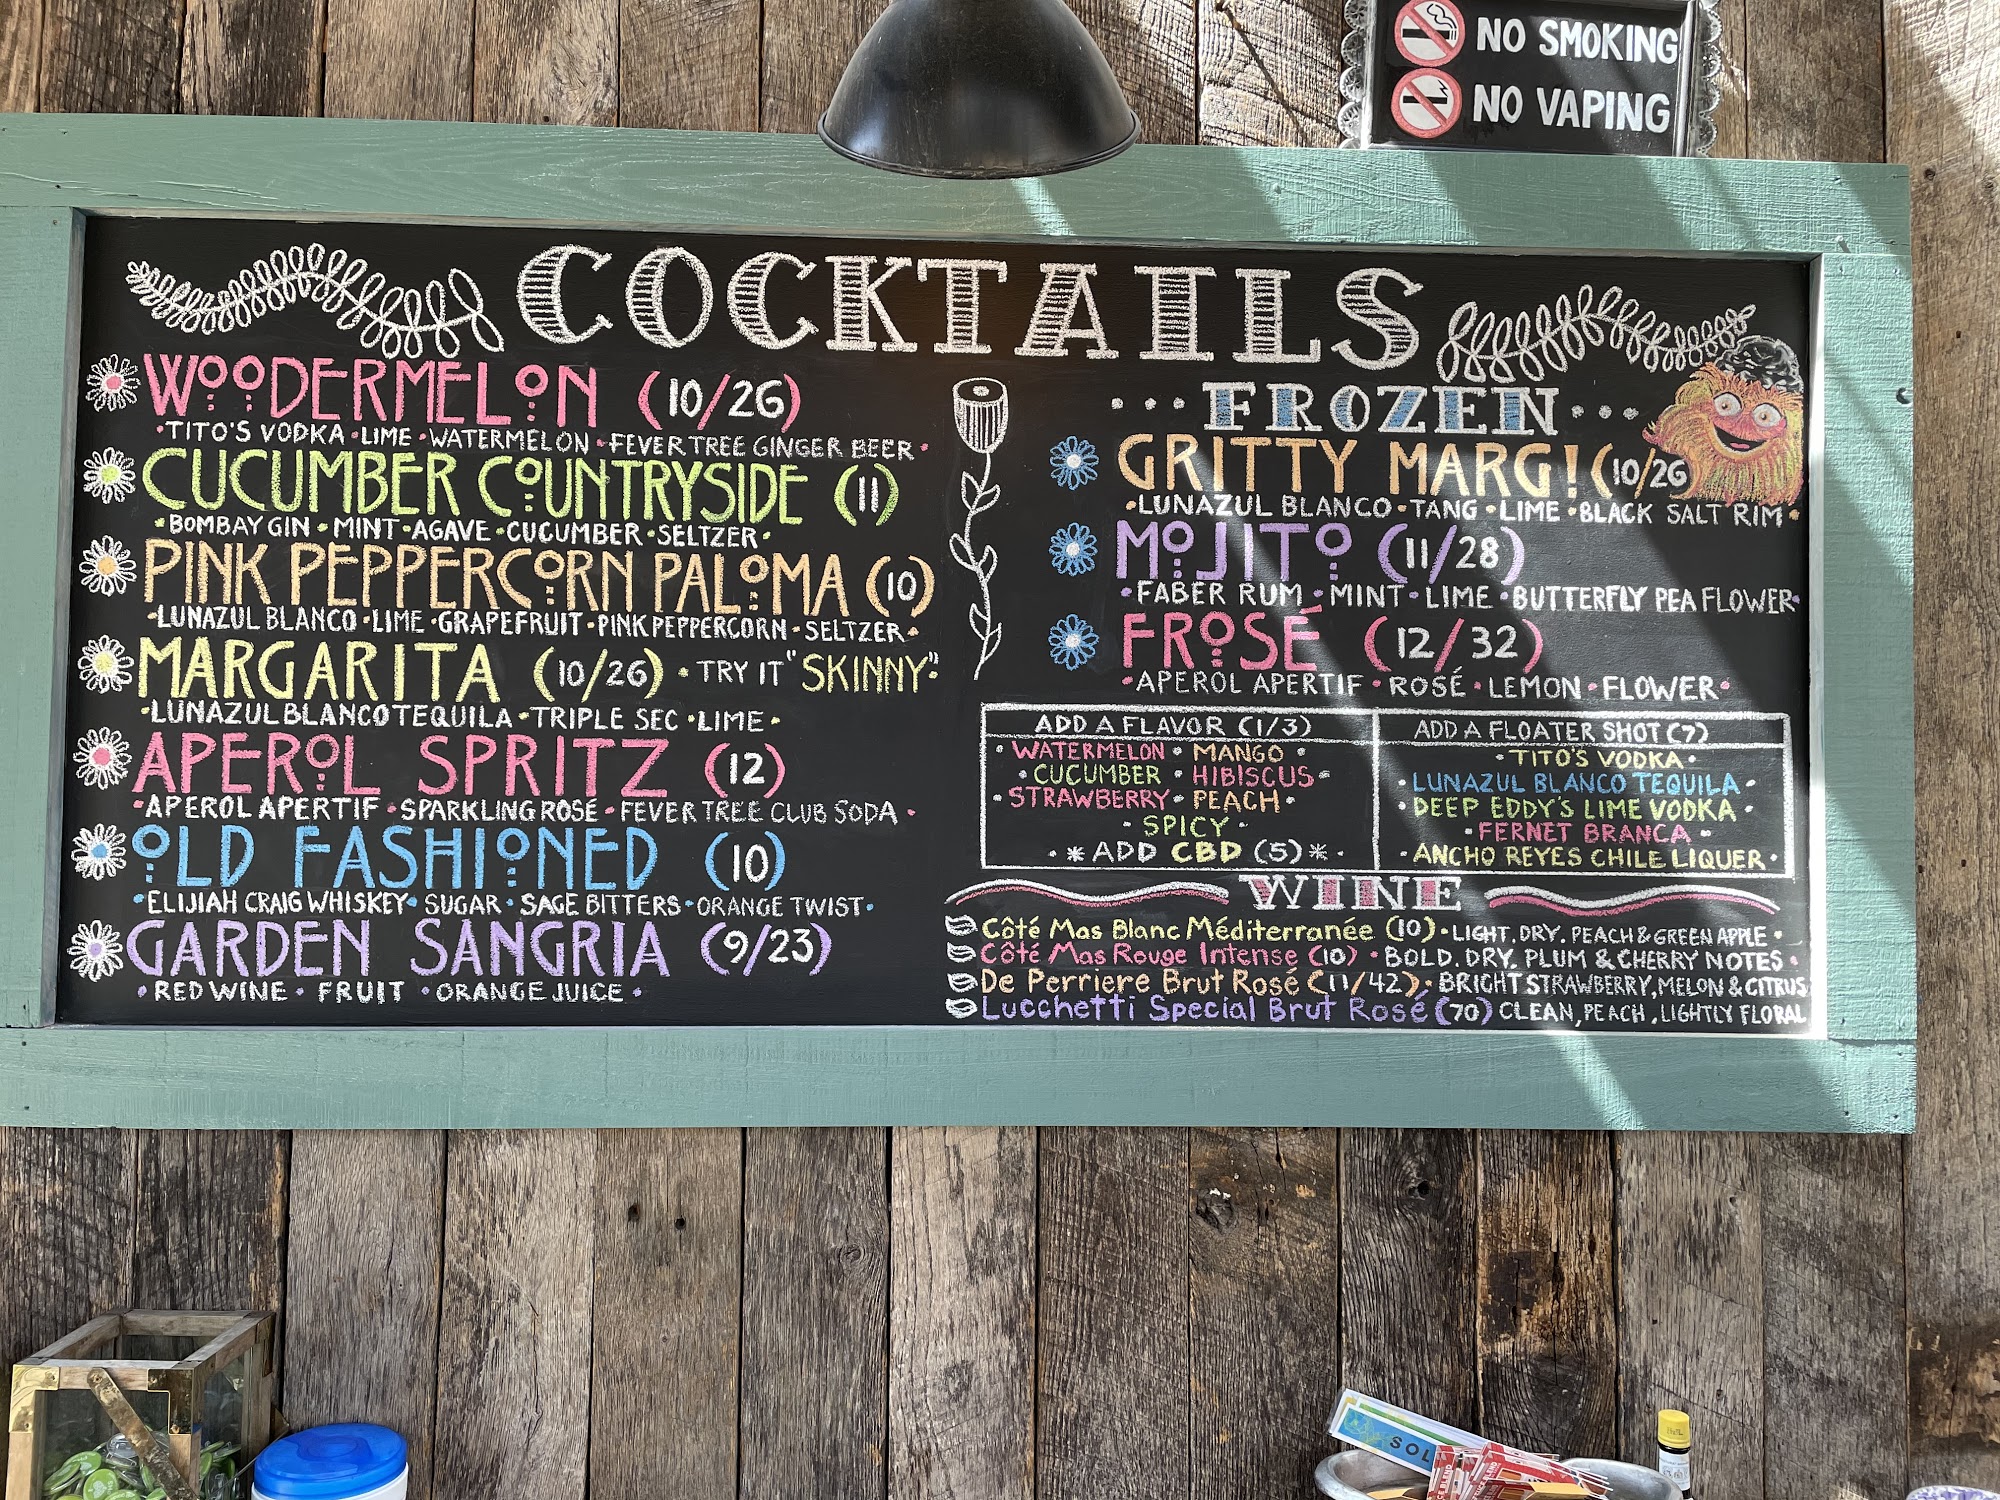 NO SMOKING
NO VAPING
COCKTAILS
WOODERMELON (10/26)
·TITO'S VODKA·LIME·WATERMELON·FEVER TREE GINGER BEER·
CUCUMBER COUNTRYSIDE (11)
·BOMBAY GIN·MINT·AGAVE·CUCUMBER·SELTZER·
PINK PEPPERCORN PALOMA (10)
·LUNAZUL BLANCO·LIME·GRAPEFRUIT·PINK PEPPERCORN·SELTZER·
MARGARITA (10/26)·TRY IT "SKINNY"·
·LUNAZUL BLANCO TEQUILA·TRIPLE SEC·LIME·
APEROL SPRITZ (12)
·APEROL APERTIF·SPARKLING ROSÉ·FEVER TREE CLUB SODA·
OLD FASHIONED (10)
·ELIJIAH CRAIG WHISKEY·SUGAR·SAGE BITTERS·ORANGE TWIST·
GARDEN SANGRIA (9/23)
·RED WINE·FRUIT·ORANGE JUICE·
···FROZEN···
GRITTY MARG! (10/26
·LUNAZUL BLANCO·TANG·LIME·BLACK SALT RIM·
MOJITO (11/28)
·FABER RUM·MINT·LIME·BUTTERFLY PEA FLOWER·
FROSÉ (12/32)
·APEROL APERTIF·ROSÉ·LEMON·FLOWER·
ADD A FLAVOR (1/3)
·WATERMELON·MANGO
·CUCUMBER·HIBISCUS·
·STRAWBERRY·PEACH·
·SPICY·
·*ADD CBD (5)*·
ADD A FLOATER SHOT (7)
·TITO'S VODKA·
LUNAZUL BLANCO TEQUILA·
·DEEP EDDY'S LIME VODKA·
·FERNET BRANCA·
·ANCHO REYES CHILE LIQUER·
WINE
Côté Mas Blanc Méditerranée (10)·LIGHT. DRY. PEACH & GREEN APPLE·
Côté Mas Rouge Intense (10)·BOLD. DRY. PLUM & CHERRY NOTES·
De Perriere Brut Rosé (11/42)·BRIGHT STRAWBERRY, MELON & CITRUS
Lucchetti Special Brut Rosé (70) CLEAN, PEACH, LIGHTLY FLORAL
SOL